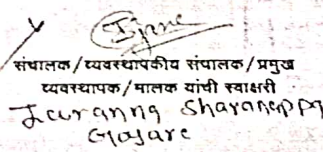 संचालक/व्यवस्थापकीय संचालक/प्रमुख
व्यवस्थापक/मालक यांची स्वाक्षरी
Sharanappa
Gajare